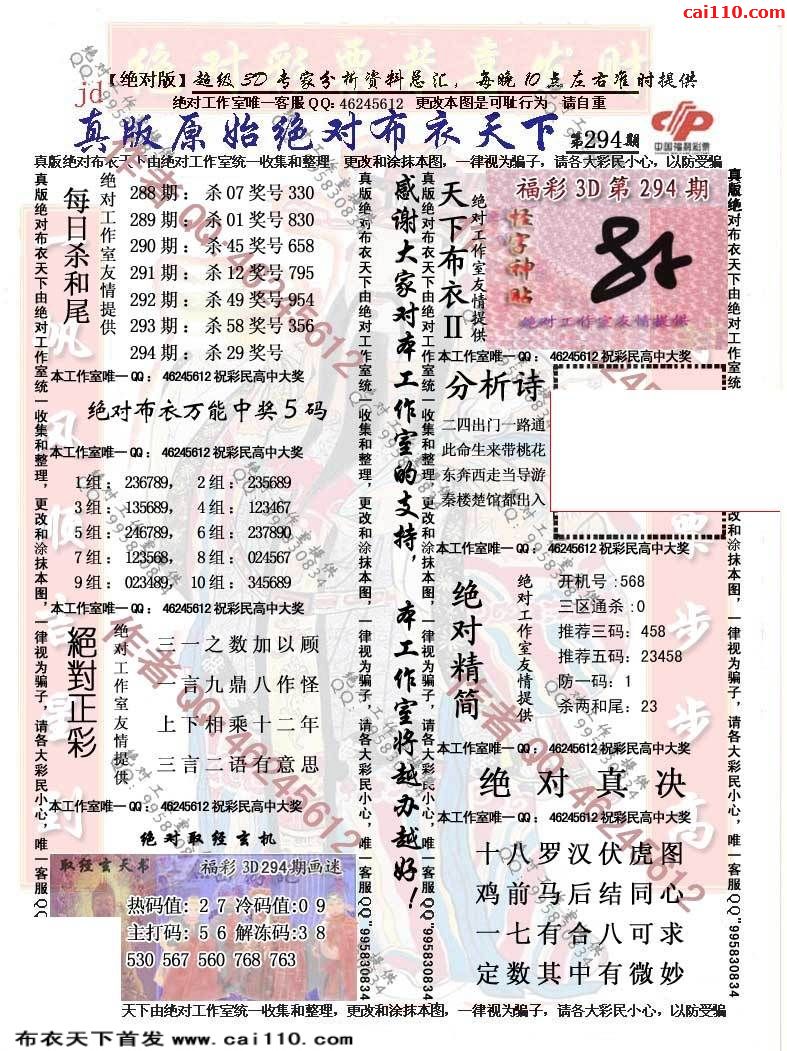 cai110.com
【绝对版】超级3D专家分析资料总汇，每晚10点左右准时提供
jd
绝对工作室唯一客服QQ: 46245612 更改本图是可耻行为 请自重
真版原始绝对布衣天下 第294期
中国福利彩票
真版绝对布衣天下由绝对工作室统一收集和整理，更改和涂抹本图，一律视为骗子，请各大彩民小心，以防受骗
每日杀和尾
绝对工作室友情提供
288期：杀07奖号330
289期：杀01奖号830
290期：杀45奖号658
291期：杀12奖号795
292期：杀49奖号954
293期：杀58奖号356
294期：杀29奖号
本工作室唯一QQ：46245612祝彩民高中大奖
绝对布衣万能中奖5码
本工作室唯一QQ：46245612祝彩民高中大奖
1组：236789， 2组：235689
3组：135689， 4组：123467
5组：246789， 6组：237890
7组：123568， 8组：024567
9组：023489， 10组：345689
本工作室唯一QQ：46245612祝彩民高中大奖
絕對正彩
绝对工作室友情提供
三一之数加以顾
一言九鼎八作怪
上下相乘十二年
三言二语有意思
本工作室唯一QQ：46245612祝彩民高中大奖
绝对取经玄机
取经玄天书 福彩3D294期画迷
热码值：27冷码值：09
主打码：56解冻码：38
530 567 560 768 763
感谢大家对本工作室的支持，本工作室将越办越好！
天下布衣II
绝对工作室友情提供
福彩3D第294期
怪字神贴
绝对工作室友情提供
本工作室唯一QQ：46245612祝彩民高中大奖
分析诗
二四出门一路通
此命生来带桃花
东奔西走当导游
秦楼楚馆都出入
本工作室唯一QQ：46245612祝彩民高中大奖
绝对精简
绝对工作室友情提供
开机号：568
三区通杀：0
推荐三码：458
推荐五码：23458
防一码：1
杀两和尾：23
本工作室唯一QQ：46245612祝彩民高中大奖
绝对真决
本工作室唯一QQ：46245612祝彩民高中大奖
十八罗汉伏虎图
鸡前马后结同心
一七有合八可求
定数其中有微妙
真版绝对布衣天下由绝对工作室统一收集和整理，更改和涂抹本图，一律视为骗子，请各大彩民小心，唯一客服QQ"995830834
天下由绝对工作室统一收集和整理，更改和涂抹本图，一律视为骗子，请各大彩民小心，以防受骗
布衣天下首发 www.cai110.com